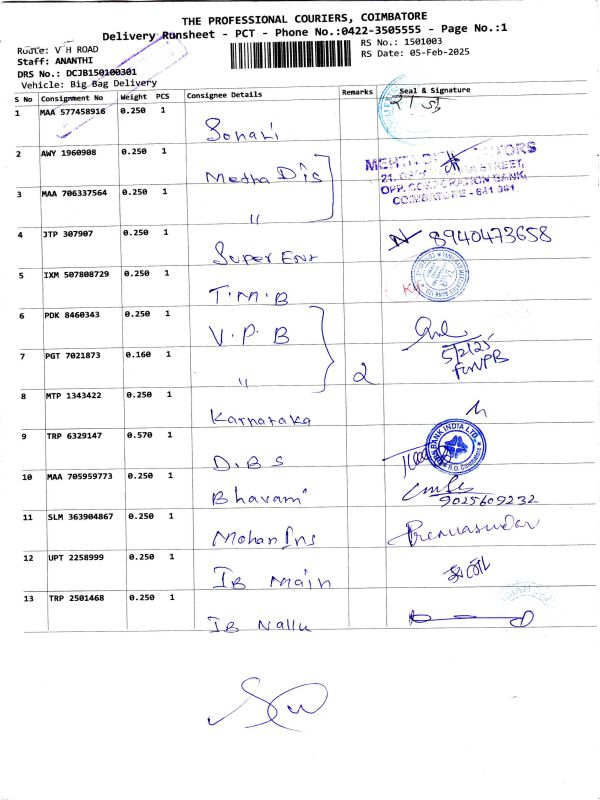 THE PROFESSIONAL COURIERS, COIMBATORE
Delivery Runsheet - PCT - Phone No.:0422-3505555 - Page No.:1
Route: V H ROAD
RS No.: 1501003
Staff: ANANTHI
RS Date: 05-Feb-2025
DRS No.: DCJB150100301
Vehicle: Big Bag Delivery
S No Consignment No Weight PCS Consignee Details Remarks Seal & Signature
1 MAA 577458916 0.250 1 Sonani
2 AWY 1960908 0.250 1 Metha Dis
3 MAA 706337564 0.250 1 "
OPP. CORPORATION BANK,
COIMBATORE - 641 001
4 JTP 307907 0.250 1 Super Enr 8940473658
5 IXM 507808729 0.250 1 T.M.B
6 PDK 8460343 0.250 1 V.P.B
7 PGT 7021873 0.160 1 " 2 5/2/25
8 MTP 1343422 0.250 1 Karnataka
9 TRP 6329147 0.570 1 D.B.S
BANK INDIA LTD.
10 MAA 705959773 0.250 1 Bhavani 9025609232
11 SLM 363904867 0.250 1 Mohan Ins
12 UPT 2258999 0.250 1 IB Main
13 TRP 2501468 0.250 1 IB Nallu